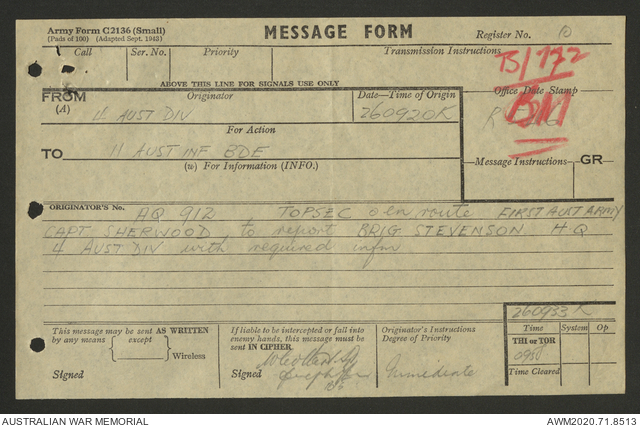 Army Form C2136 (Small)
(Pads of 100) (Adapted Sept. 1943)
MESSAGE FORM
Register No. 10
Call Ser. No. Priority Transmission Instructions
TS/172
ABOVE THIS LINE FOR SIGNALS USE ONLY
FROM Originator Date—Time of Origin Office Date Stamp
(A) 4 AUST DIV 260920K
BM
For Action
TO 11 AUST INF BDE
(w) For Information (INFO.) Message Instructions GR
ORIGINATOR'S No. AQ 912 TOPSEC en route FIRST AUST ARMY
CAPT. SHERWOOD to report BRIG STEVENSON HQ
4 AUST DIV with required infm
260933K
This message may be sent AS WRITTEN
by any means except
Wireless
Signed
If liable to be intercepted or fall into
enemy hands, this message must be
sent IN CIPHER.
Signed
Originator's Instructions
Degree of Priority
Immediate
Time System Op
THI or TOR
0950
Time Cleared
AUSTRALIAN WAR MEMORIAL AWM2020.71.8513